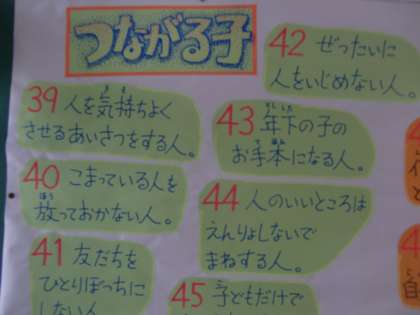 つながる子
39 人を気持ちよく
させるあいさつをする人。
40 こまっている人を
放っておかない人。
41 友だちを
ひとりぼっちに
しない人
42 ぜったいに
人をいじめない人。
43 年下の子の
お手本になる人。
44 人のいいところは
えんりょしないで
まねする人。
45 子どもだけで